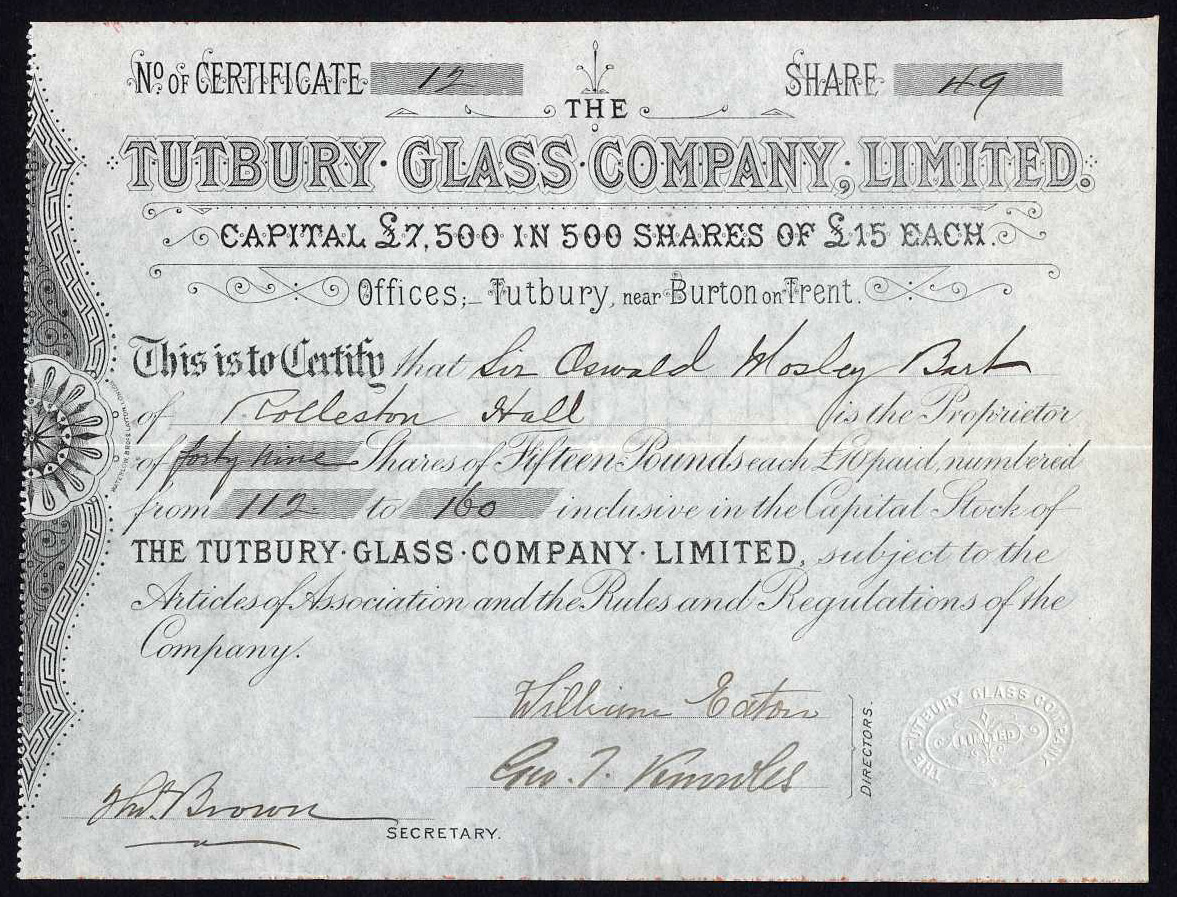 No. OF CERTIFICATE 12 SHARE 49
THE
TUTBURY · GLASS · COMPANY, LIMITED.
CAPITAL £7,500 IN 500 SHARES OF £15 EACH.
Offices;— Tutbury, near Burton on Trent.
This is to Certify that Sir Oswald Mosley Bart
of Rolleston Hall is the Proprietor
of forty nine Shares of Fifteen Pounds each £10 paid, numbered
from 112 to 160 inclusive in the Capital Stock of
THE TUTBURY · GLASS · COMPANY · LIMITED, subject to the
Articles of Association and the Rules and Regulations of the
Company.
William Eaton
Geo. T. Knowles
DIRECTORS.
THE TUTBURY GLASS COMPANY
LIMITED
Thos. Brown
SECRETARY.